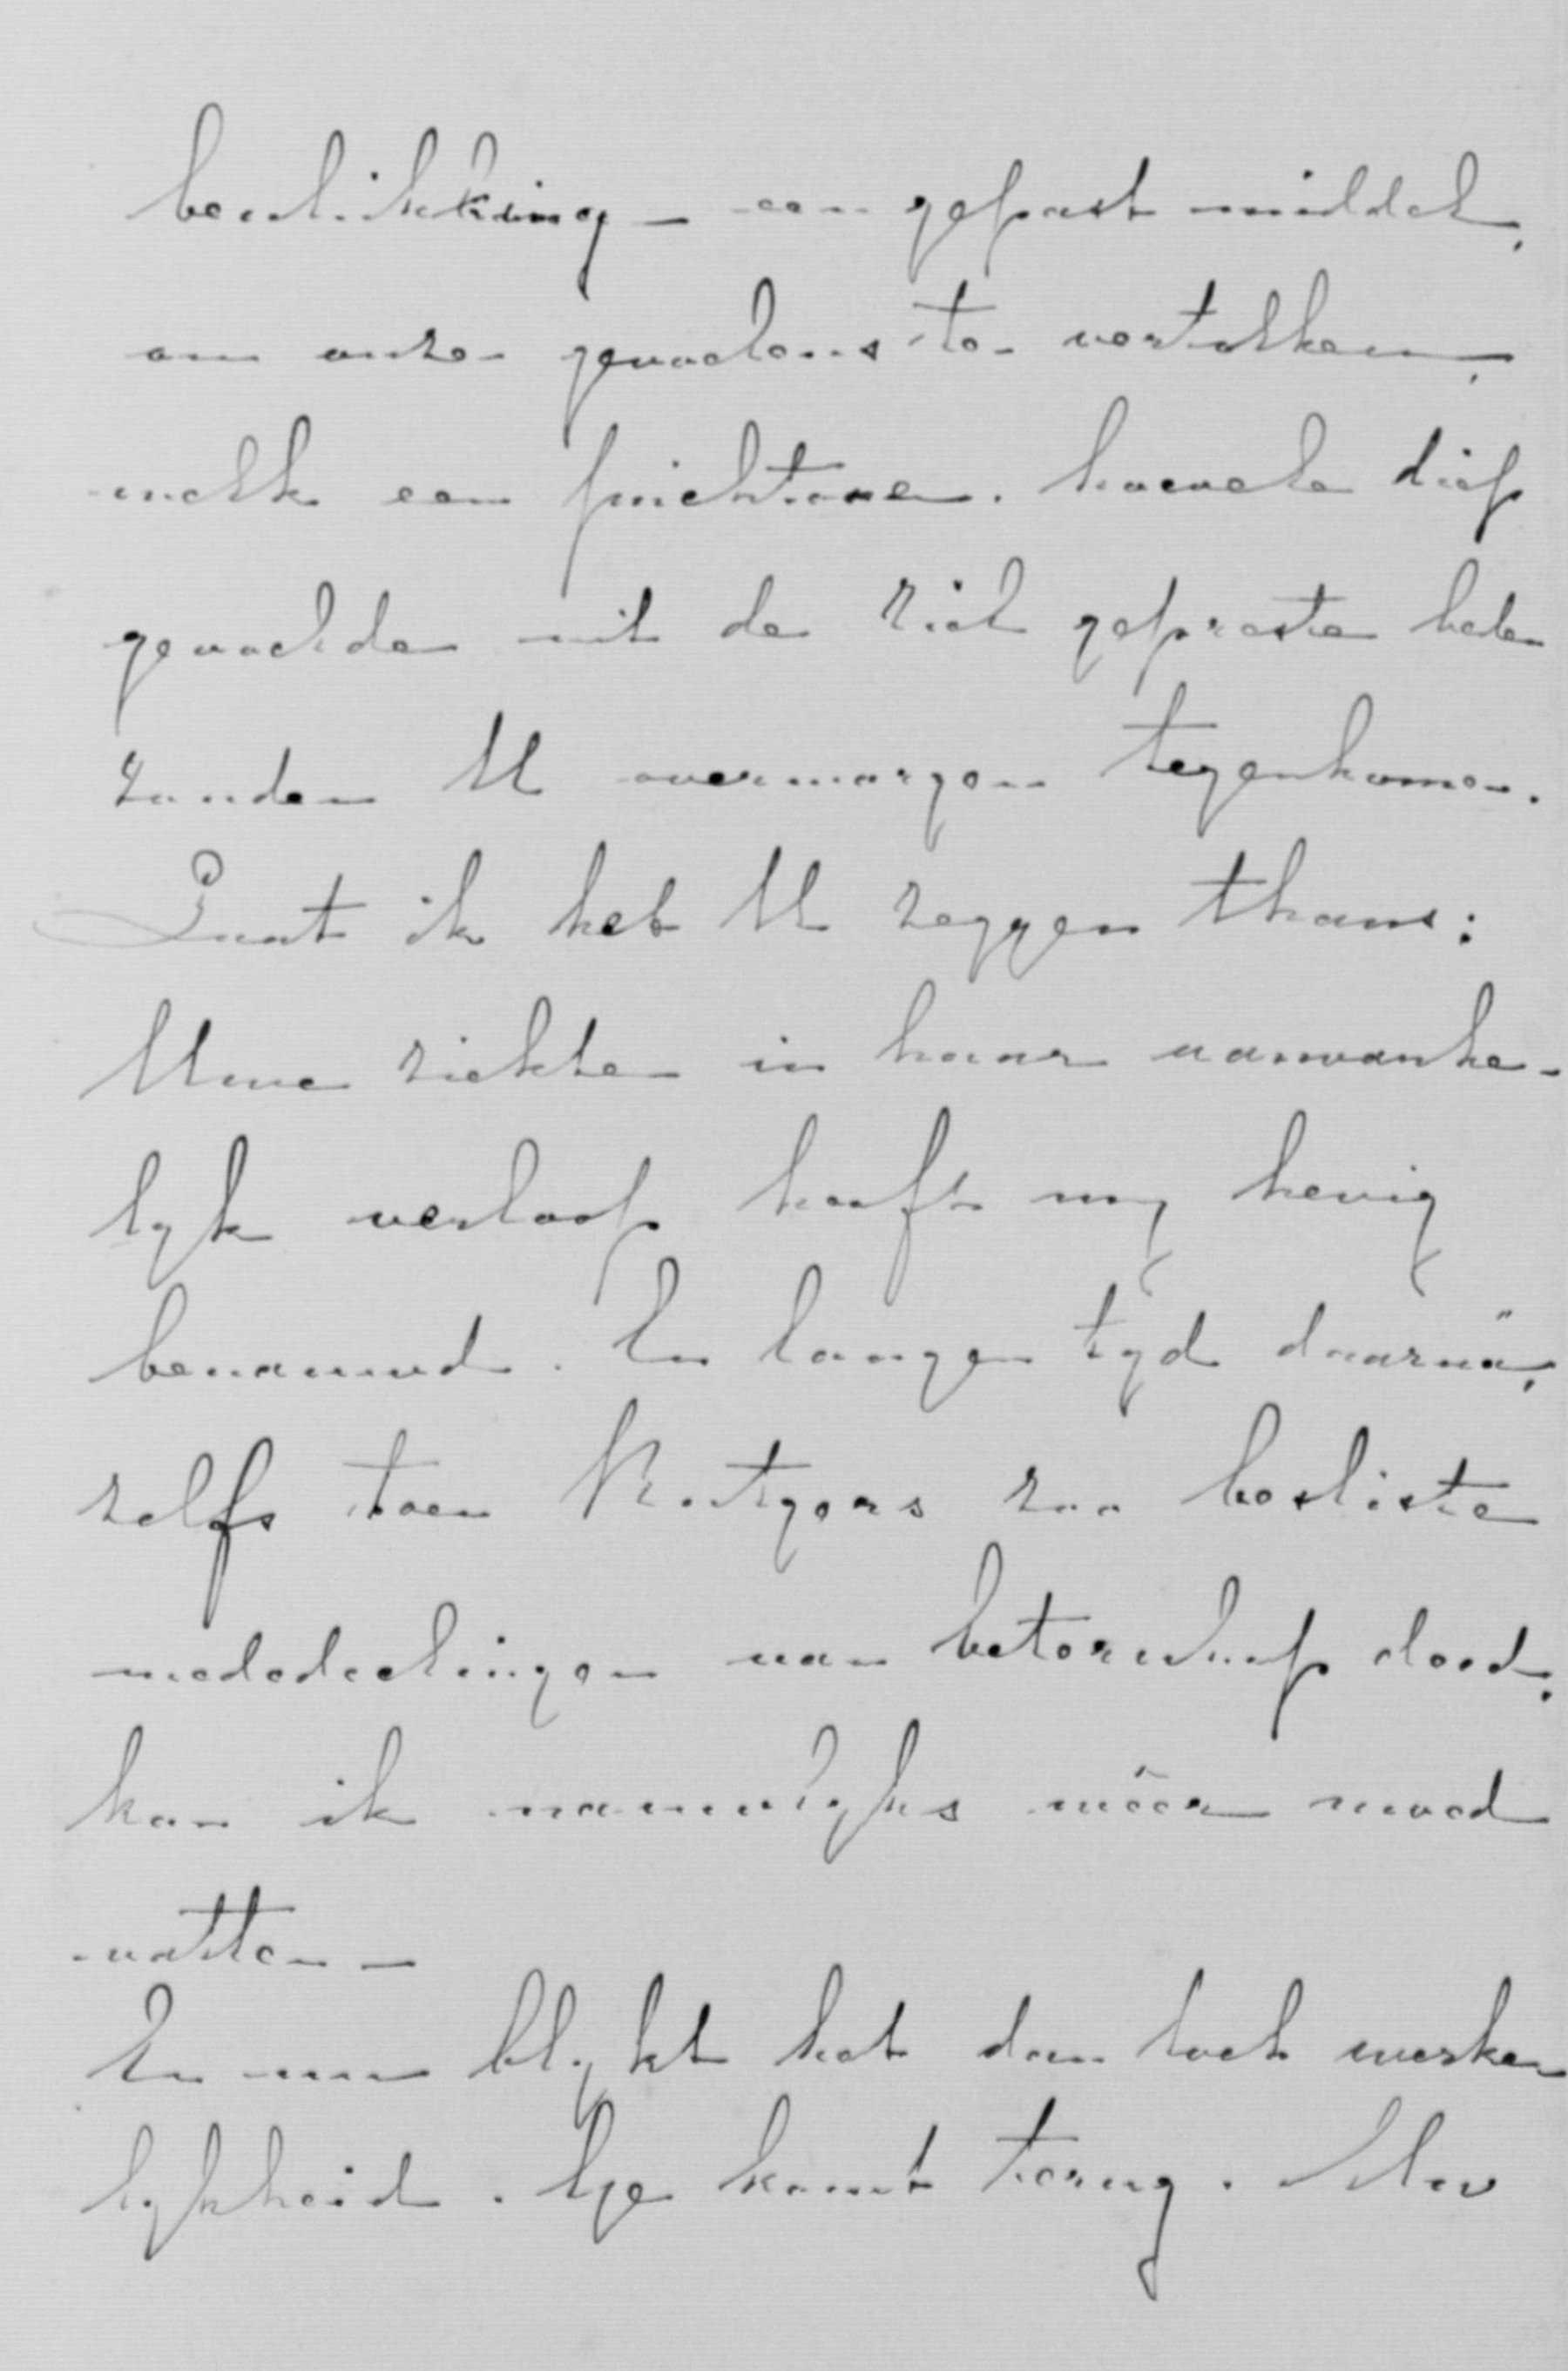 beschikking – een gepast middel,
om onze gevoelens te vertolken,
welk een prachtvoer. hoevele diep
gevoelde uit de ziel gepreste beden
zonden U overmorgen tegenkomen.
Want ik heb U zeggen thans:
Uwe ziekte in haar aanvanke-
lyk verloop heeft my hevig
benauwd. En langen tyd daarna,
zelfs toen Rutgers zoo besliste
mededeelingen van beterschap deed,
kon ik nauwelyks weer moed
vatten –
En nu blykt het dan toch werke
lykheid. Ge komt terug. Uw